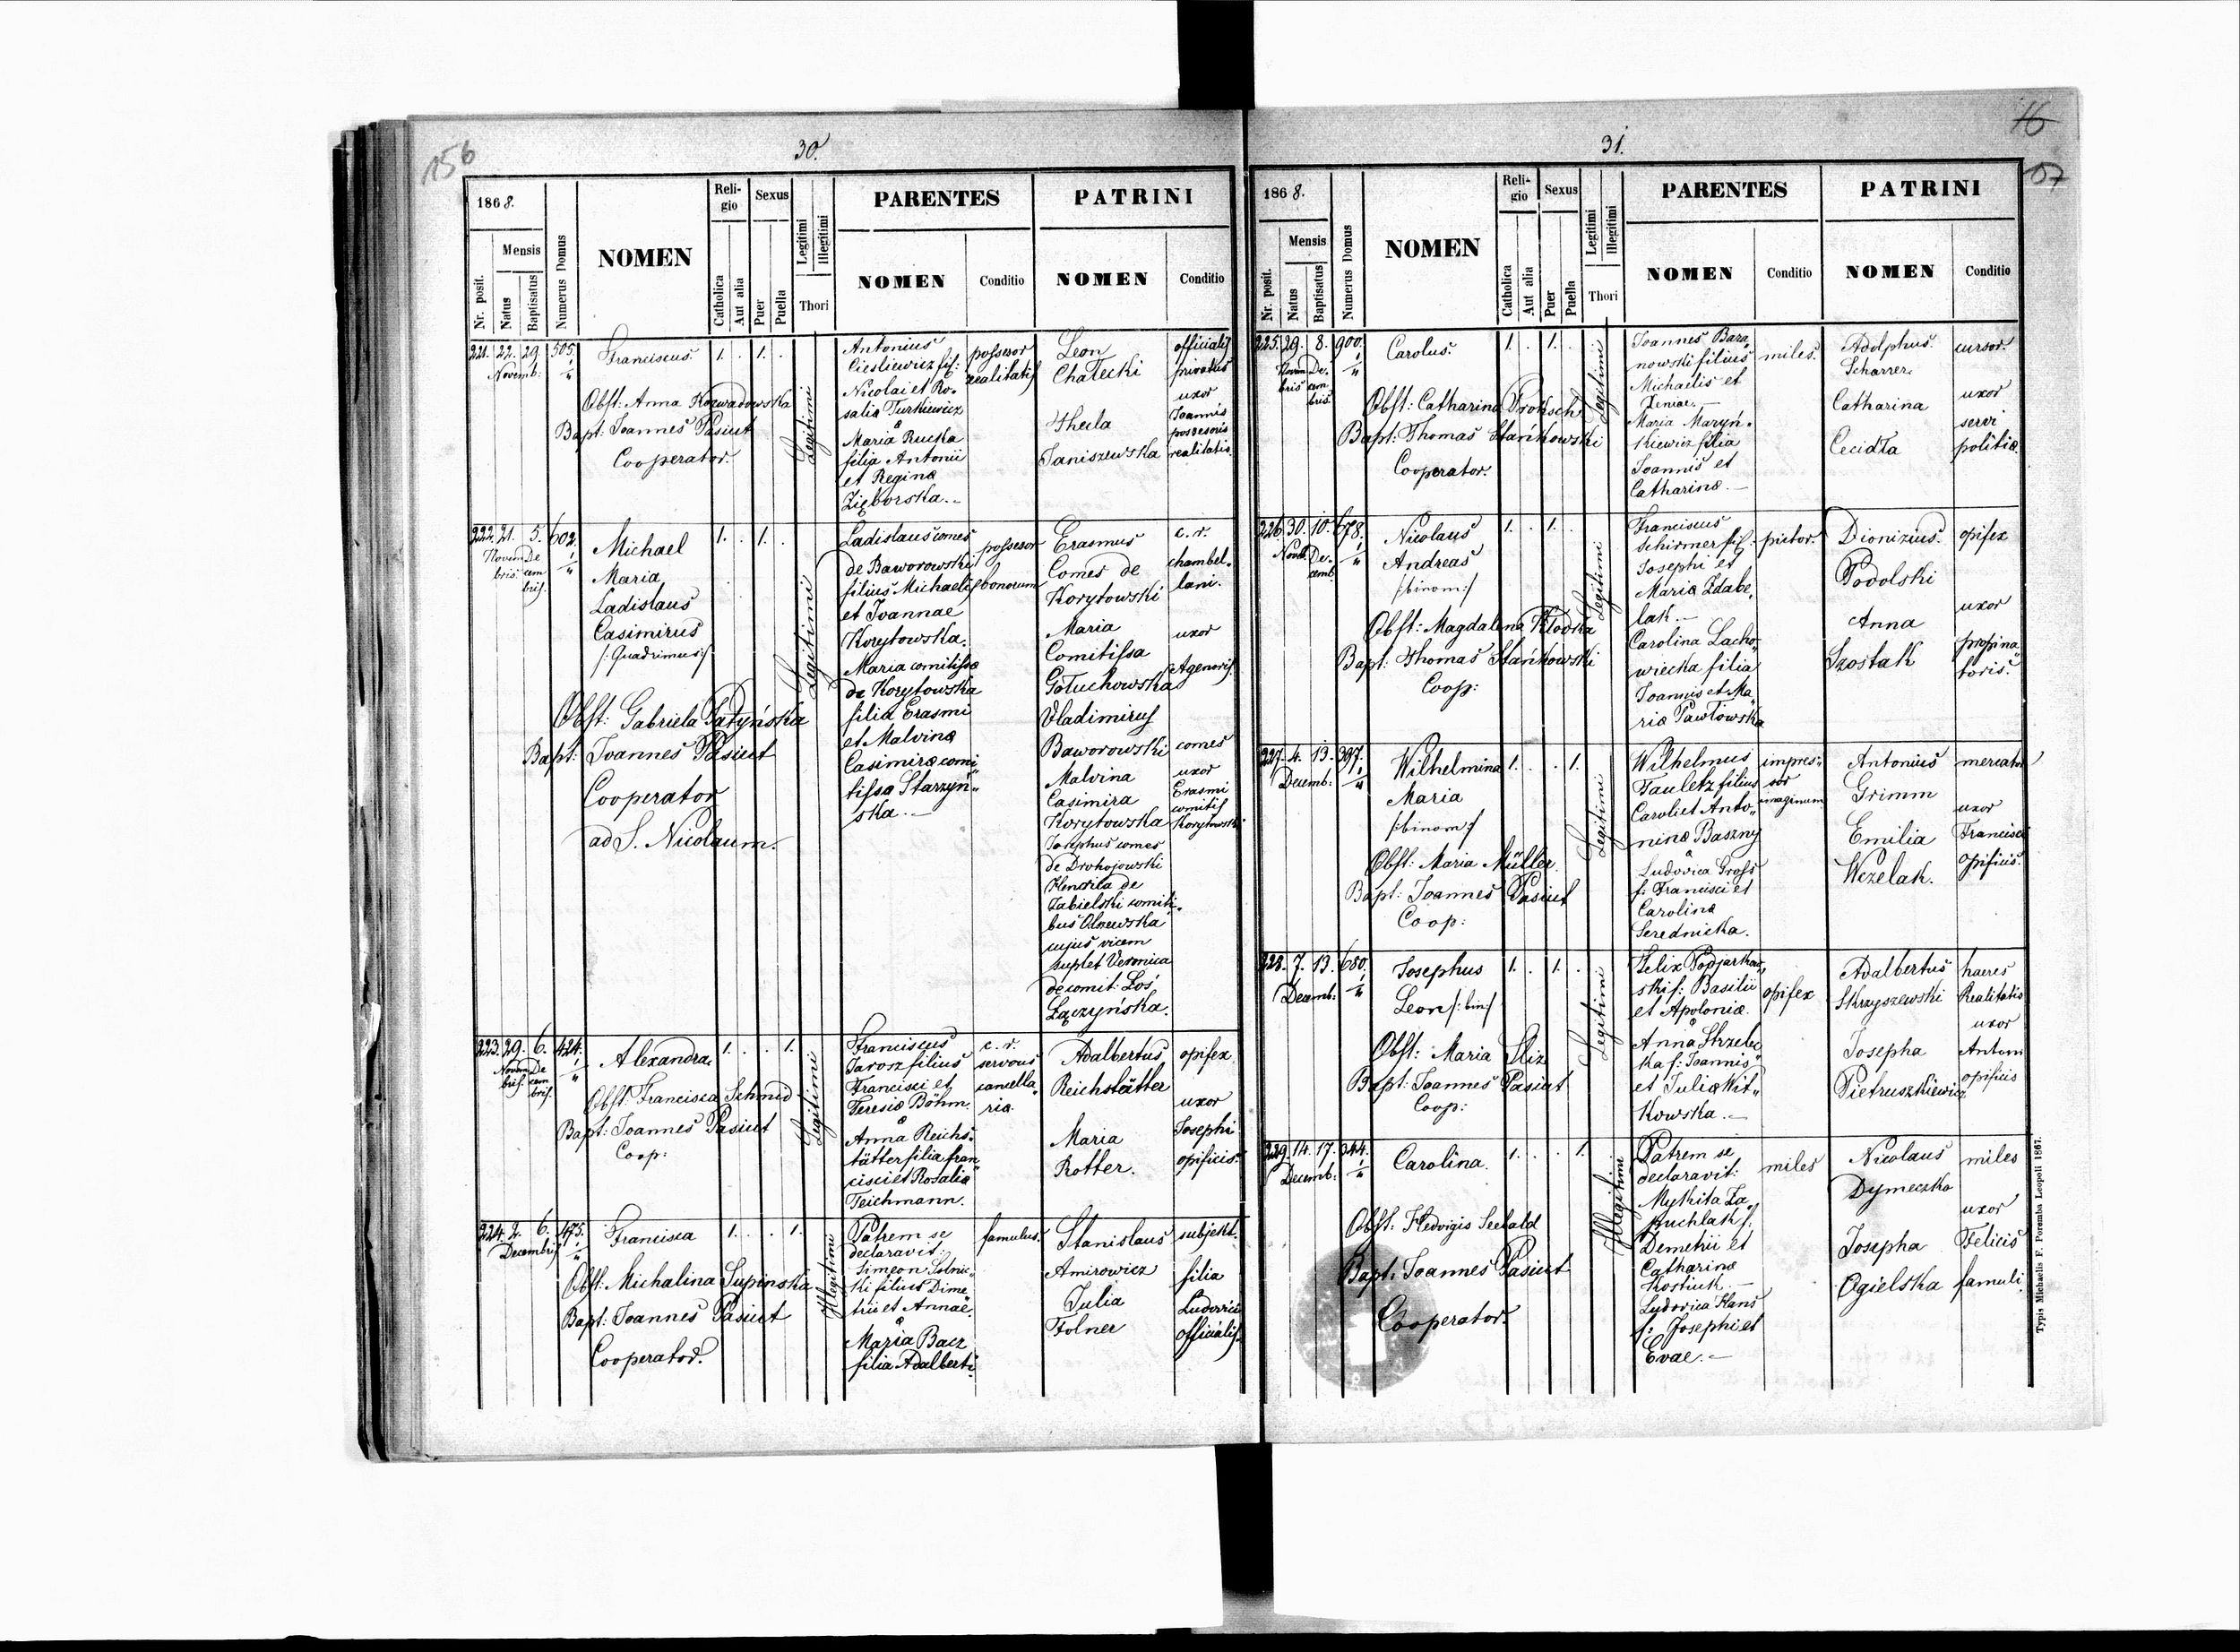 156
30.
1868.
Nr. posit.
Mensis
Natus
Baptisatus
Numerus Domus
NOMEN
Religio
Catholica
Aut alia
Sexus
Puer
Puella
Legitimi
Illegitimi
Thori
PARENTES
NOMEN
Conditio
PATRINI
NOMEN
Conditio
221. 22. 29. 505.
Novemb:
Franciscus. 1. . 1. .
Obst: Anna Rozwadowska
Bapt: Joannes Pasiut
Cooperator.
Legitimi
Antonius
Cieslewicz fil:
Nicolai et Ro-
salia Turkiewicz
Maria Rucka
filia Antonii
et Regina
Zięborska.-
possesor
realitatis
Leon
Chałecki
Thecla
Janiszewska
officialis
privatus
uxor
Joannis
possesoris
realitatis.
222. 21. 5. 602.
Novem De
bris. cem
bris.
Michael 1. . 1. .
Maria
Ladislaus
Casimirus
/: Quadrimus :/
Obst: Gabriela Patyńska
Bapt: Joannes Pasiut
Cooperator
ad S. Nicolaum.
Legitimi
Ladislaus comes
de Baworowski
filius Michaelis
et Joannae
Korytowska.
Maria comitissa
de Korytowska
filia Erasmi
et Malvina
Casimira comi
tissa Starzyń
ska.-
possesor
bonorum
Erasmus
Comes de
Korytowski
Maria
Comitissa
Gołuchowska
Vladimirus
Baworowski
Malvina
Casimira
Korytowska
Josephus comes
de Drohojowski
Henrila de
Zabielski comiti-
bus
cujus vicem
suplet Veronica
de comit: Łoś
Łączyńska.
c. r.
chambel-
lani.
uxor
Agenoris.
comes
uxor
Erasmi
comitis
Korytowski
223. 29. 6. 424.
Novem De
bris. cem
bris.
Alexandra 1. . . 1.
Obst: Francisca Schmid
Bapt: Joannes Pasiut
Coop:
Legitimi
Franciscus
Jarosz filius
Francisci et
Teresia Böhm.
Anna Reichs-
tätter filia fran
cisci et Rosalia
Teichmann.
c. r.
servous
cancella
ria.
Adalbertus
Reichstätter
Maria
Rotter.
opifex
uxor
Josephi
opificis.
224. 2. 6. 475.
Decembris
Francisca 1. . . 1.
Obst: Michalina Supinska
Bapt: Joannes Pasiut
Cooperator.
Illegitimi
Patrem se
declaravit:
Simeon Solnic
ki filius Dime
trii et Annae.
Maria Bacz
filia Adalberti.
famulus.
Stanislaus
Amirowicz
Julia
Folner
subjekt.
filia
Ludovici
officialis.
16
57
31.
1868.
Nr. posit.
Mensis
Natus
Baptisatus
Numerus Domus
NOMEN
Religio
Catholica
Aut alia
Sexus
Puer
Puella
Legitimi
Illegitimi
Thori
PARENTES
NOMEN
Conditio
PATRINI
NOMEN
Conditio
225. 29. 8. 900.
Novem De-
bris cem
bris.
Carolus. 1. . 1. .
Obst: Catharina Proksch
Bapt: Thomas Stańkowski
Cooperator.
Legitimi
Joannes Bara
nowski filius
Michaelis et
Xeniae.-
Maria Maryń-
kiewicz filia
Joannis et
Catharina.-
miles.
Adolphus.
Scharrer.
Catharina
Cecidła
cursor.
uxor
servi
politiæ.
226. 30. 10. 678.
Novb. De-
cemb.
Nicolaus 1. . 1. .
Andreas
/:binom:/
Obst: Magdalena Kłodka
Bapt: Thomas Stańkowski
Coop:
Legitimi
Franciscus
Schirmer fil:
Josephi et
Maria Zdabe,
lak.-
Carolina Lacho-
wiecka filia
Joannis et Ma
ria Pawłowska
pictor.
Dionizius.
Podolski
Anna
Szostak
opifex
uxor
propina
toris.
227. 4. 13. 397.
Decemb:
Wilhelmina 1. . . 1.
Maria
/:binom:/
Obst: Maria Müller
Bapt: Joannes Pasiut
Coop:
Legitimi
Wilhelmus
Tauletz filius
Caroli et Anto-
nina Baszny
Ludovica Gross
f: Francisci et
Carolina
Serednicka.
impres-
sor
imaginum
Antonius
Grimm
Emilia
Wczelak.
mercator
uxor
Francisci
opificis.
228. 7. 13. 680.
Decemb:
Josephus 1. . 1. .
Leon /: bin:/
Obst: Maria Sliz
Bapt: Joannes Pasiut
Coop:
Legitimi
Felix Podjarkow
ski f: Basilii
et Apolonia.
Anna Strzelec
ka f: Joannis
et Julia Wit-
kowska.-
opifex
Adalbertus
Skrzyszewski
Josepha
Pietruszkiewicz
haeres
Realitatis
uxor
Antoni
opificis
229. 14. 17. 344.
Decemb:
Carolina. 1. . . 1.
Obst: Hedvigis Seebald
Bapt: Joannes Pasiut
Cooperator.
Illegitimi
Patrem se
declaravit:
Mykita Za
puchlak f:
Demetrii et
Catharina
Kostiuk.-
Ludovica Hans
f: Josephi et
Evae.-
miles
Nicolaus
Dymeczko
Josepha
Ogielska
miles
uxor
Felicis
famuli.
Typis Michaelis F. Poremba Leopoli 1867.